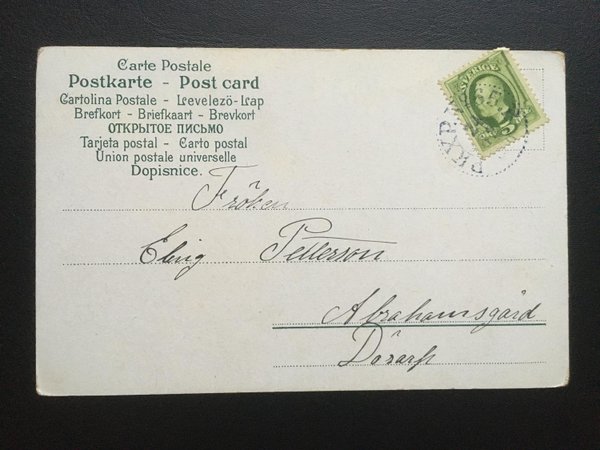 Carte Postale
Postkarte - Post card
Cartolina Postale - Levelezö-Lap
Brefkort - Briefkaart - Brevkort
ОТКРЫТОЕ ПИСЬМО
Tarjeta postal - Carto postal
Union postale universelle
Dopisnice.
SVERIGE
5
Fröken
Pettersson
Abrahamsgård